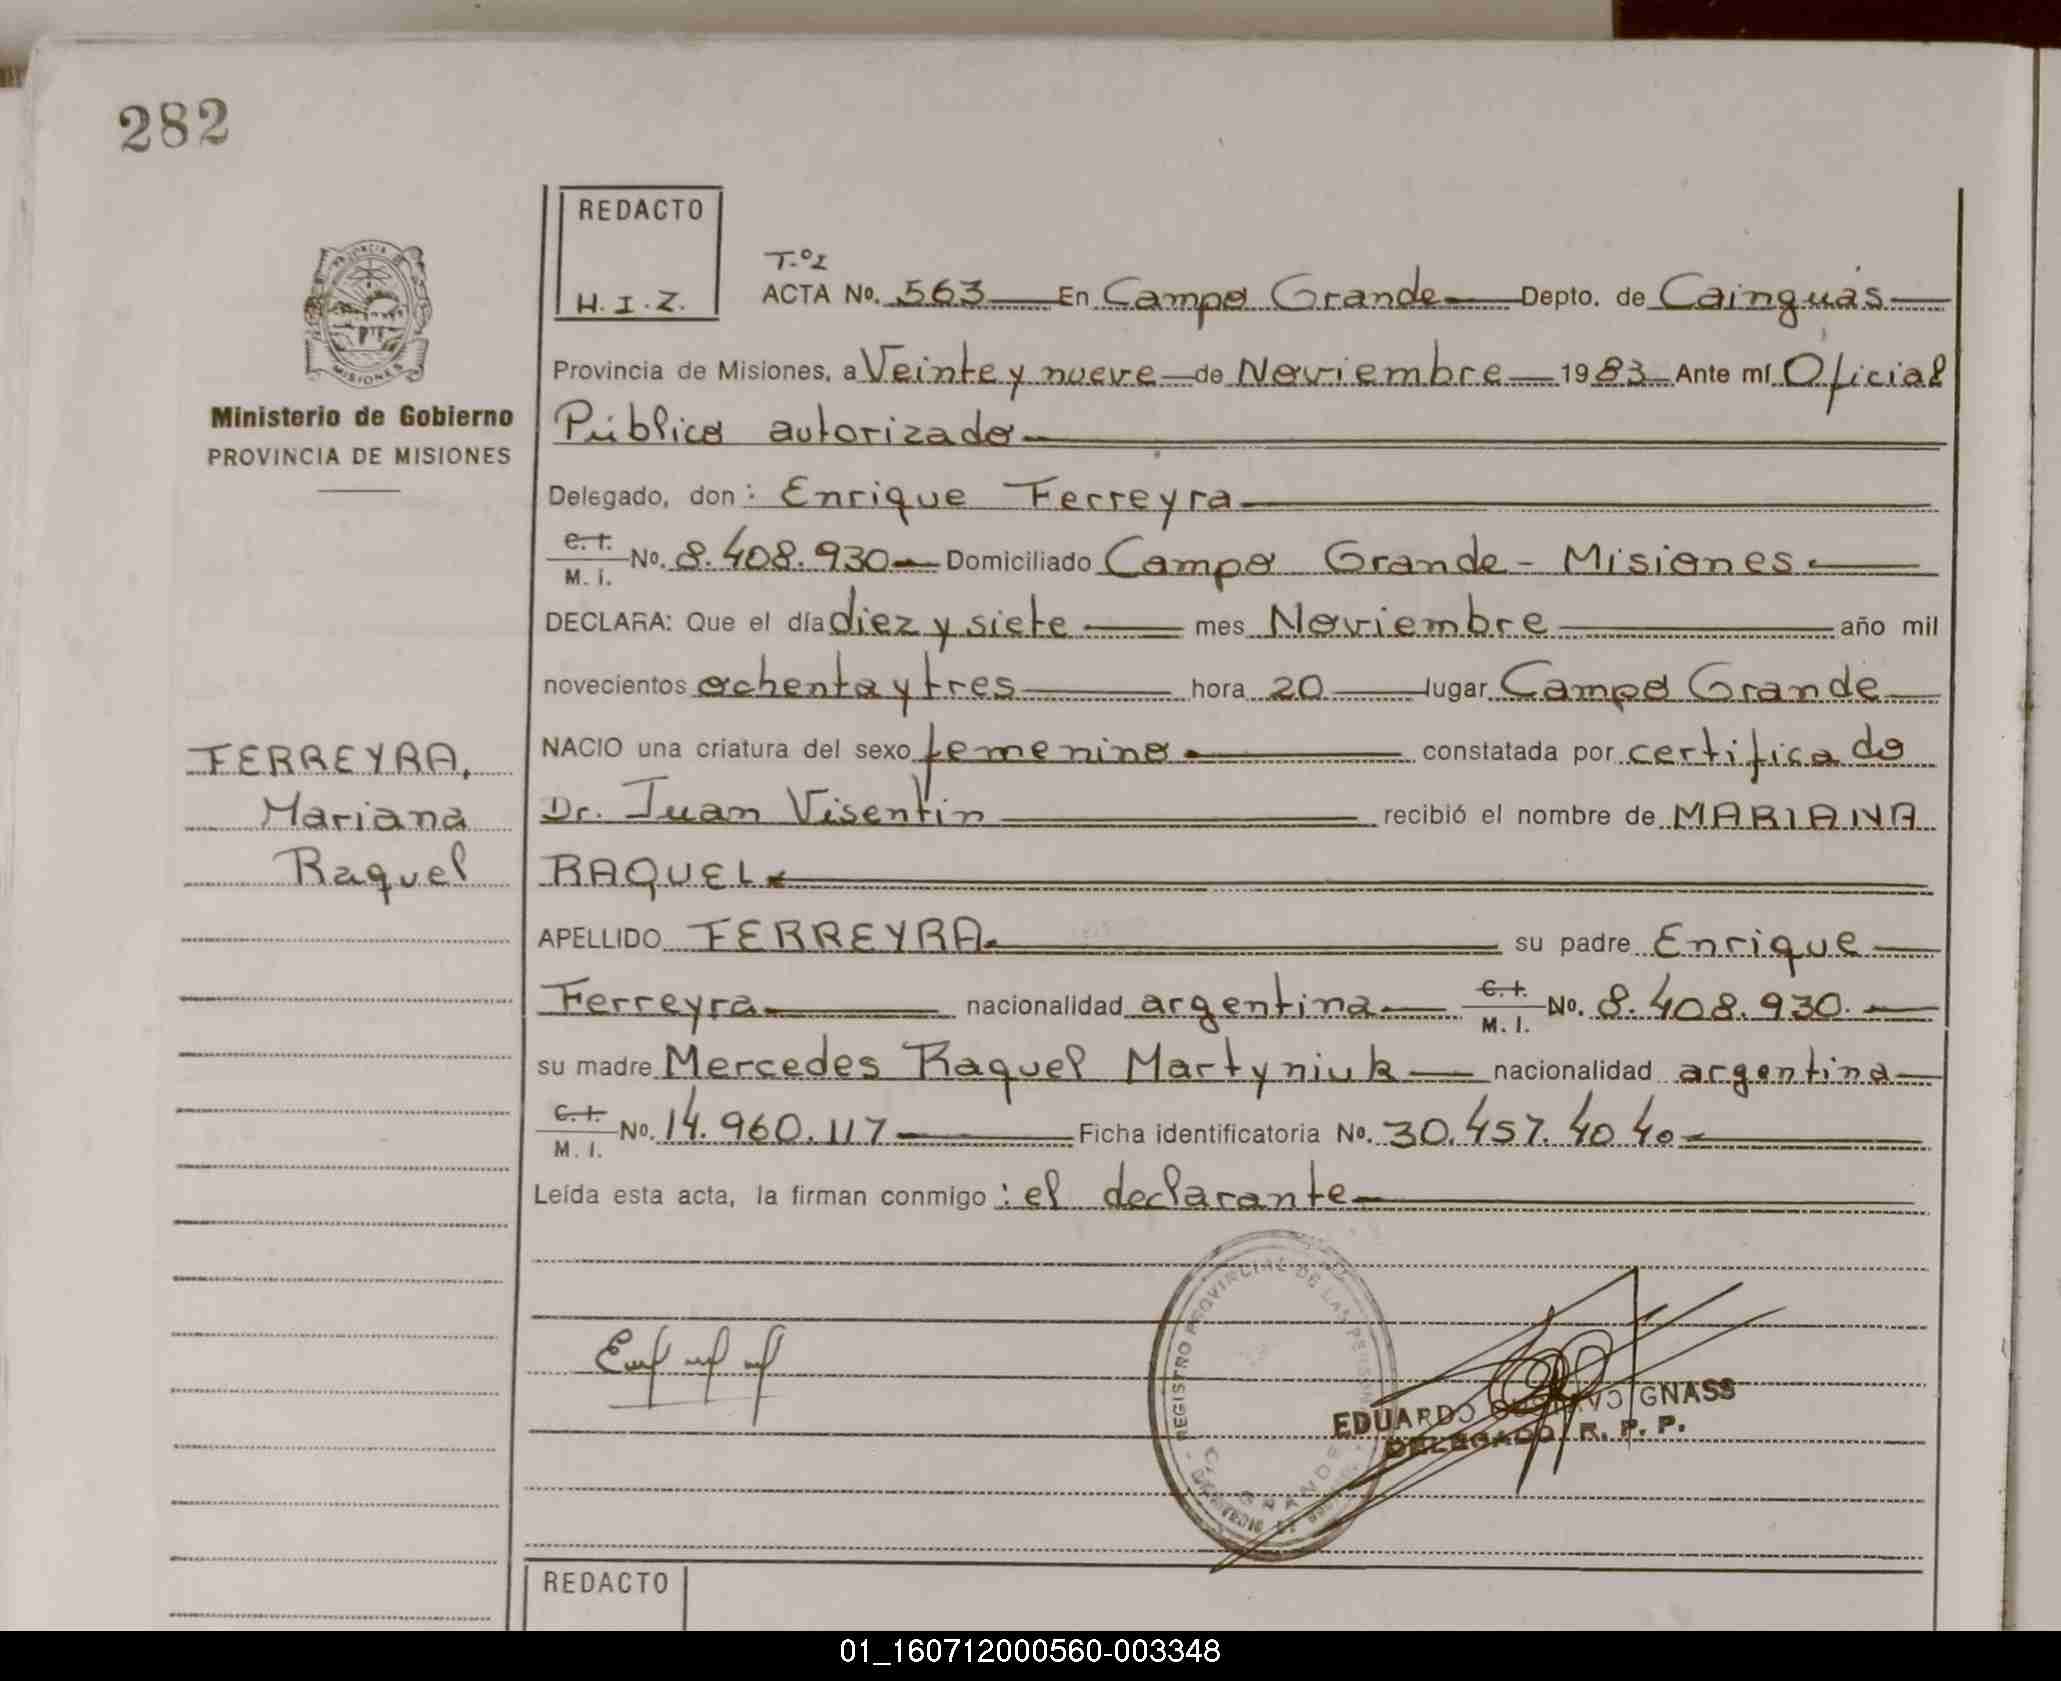 282
REDACTO
H. I. Z.
PROVINCIA DE
MISIONES
Ministerio de Gobierno
PROVINCIA DE MISIONES
T.º I
ACTA No. 563 En Campo Grande Depto. de Cainguás
Provincia de Misiones, a Veinte y nueve de Noviembre 1983 Ante mí Oficial
Público autorizado
Delegado, don: Enrique Ferreyra
C. I.
M. I. No. 8.408.930 Domiciliado Campo Grande - Misiones
DECLARA: Que el día diez y siete mes Noviembre año mil
novecientos ochenta y tres hora 20 lugar Campo Grande
NACIO una criatura del sexo femenino constatada por certificado
Dr. Juan Visentin recibió el nombre de MARIANA
RAQUEL
FERREYRA,
Mariana
Raquel
APELLIDO FERREYRA su padre Enrique
Ferreyra nacionalidad argentina C. I. M. I. No. 8.408.930.
su madre Mercedes Raquel Martyniuk nacionalidad argentina
C. I.
M. I. No. 14.960.117 Ficha identificatoria No. 30.457.40 40
Leída esta acta, la firman conmigo: el declarante
REGISTRO PROVINCIAL DE LAS PERSONAS
GRANDE
EDUARDO GUSTAVO GNASS
DELEGADO R. P. P.
REDACTO
01_160712000560-003348